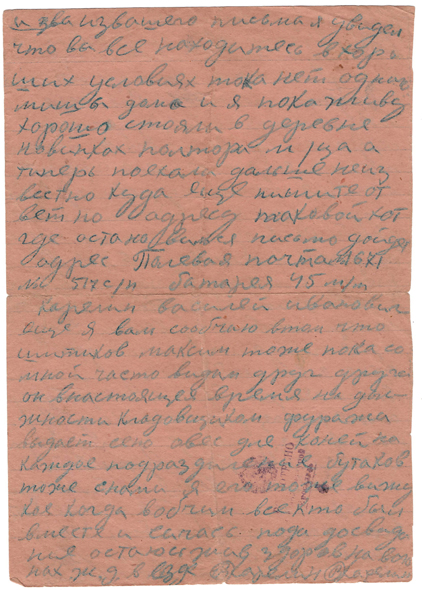 и зва извашего письма я увидел
что вы все находитесь в хоро
ших условиях тока нет однаго
миши дома и я пока живу
хорошо стояли в деревне
новинках полтора м ца а
типерь поехали дальше неиз
вестно куда еще пишите от
вет по адресу таковой вот
где остановимся письмо дойдет
адрес Полевая почта
батарея 45 м/м
Карелин василей иванович
еще я вам сообчаю втом что
шитиков максим тоже пока со
мной часто видим друг друга
он внастоящее время на дол
жности кладовщиком фуража
выдает сено авес для коней на
каждое подразделение бутаков
тоже снами я его тоже вижу
кое когда вобчим все кто был
вместе и сичась пода досвида
ния остаюсь жив здоров на